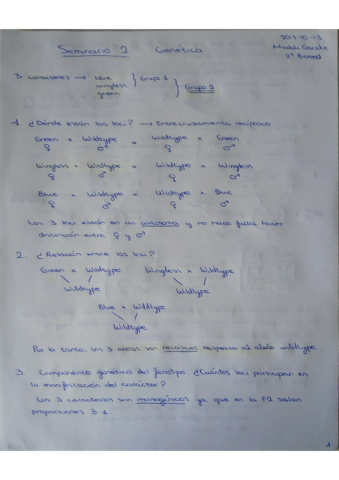 2017-10-13
Seminario 2 Genética
2º Biomed
3 caracteres → blue
wingless
green
Grupo 1
Grupo 2
1 ¿Dónde están los loci? → Entrecruzamiento recíproco
Green x Wildtype = Wildtype x Green
♀ ♂ ♀ ♂
Wingless x Wildtype = Wildtype x Wingless
♀ ♂ ♀ ♂
Blue x Wildtype = Wildtype x Blue
♀ ♂ ♀ ♂
Los 3 loci están en un autosoma y no hace falta hacer
distinción entre ♀ y ♂.
2. ¿Relación entre los loci?
Green x Wildtype Wingless x Wildtype
Wildtype Wildtype
Blue x Wildtype
Wildtype
Por lo tanto, los 3 alelos son recesivos respecto al alelo wildtype
3 Componente genético del fenotipo ¿Cuántos loci participan en
la manifestación del carácter?
Los 3 caracteres son monogénicos ya que en la F2 salen
proporciones 3:1
1